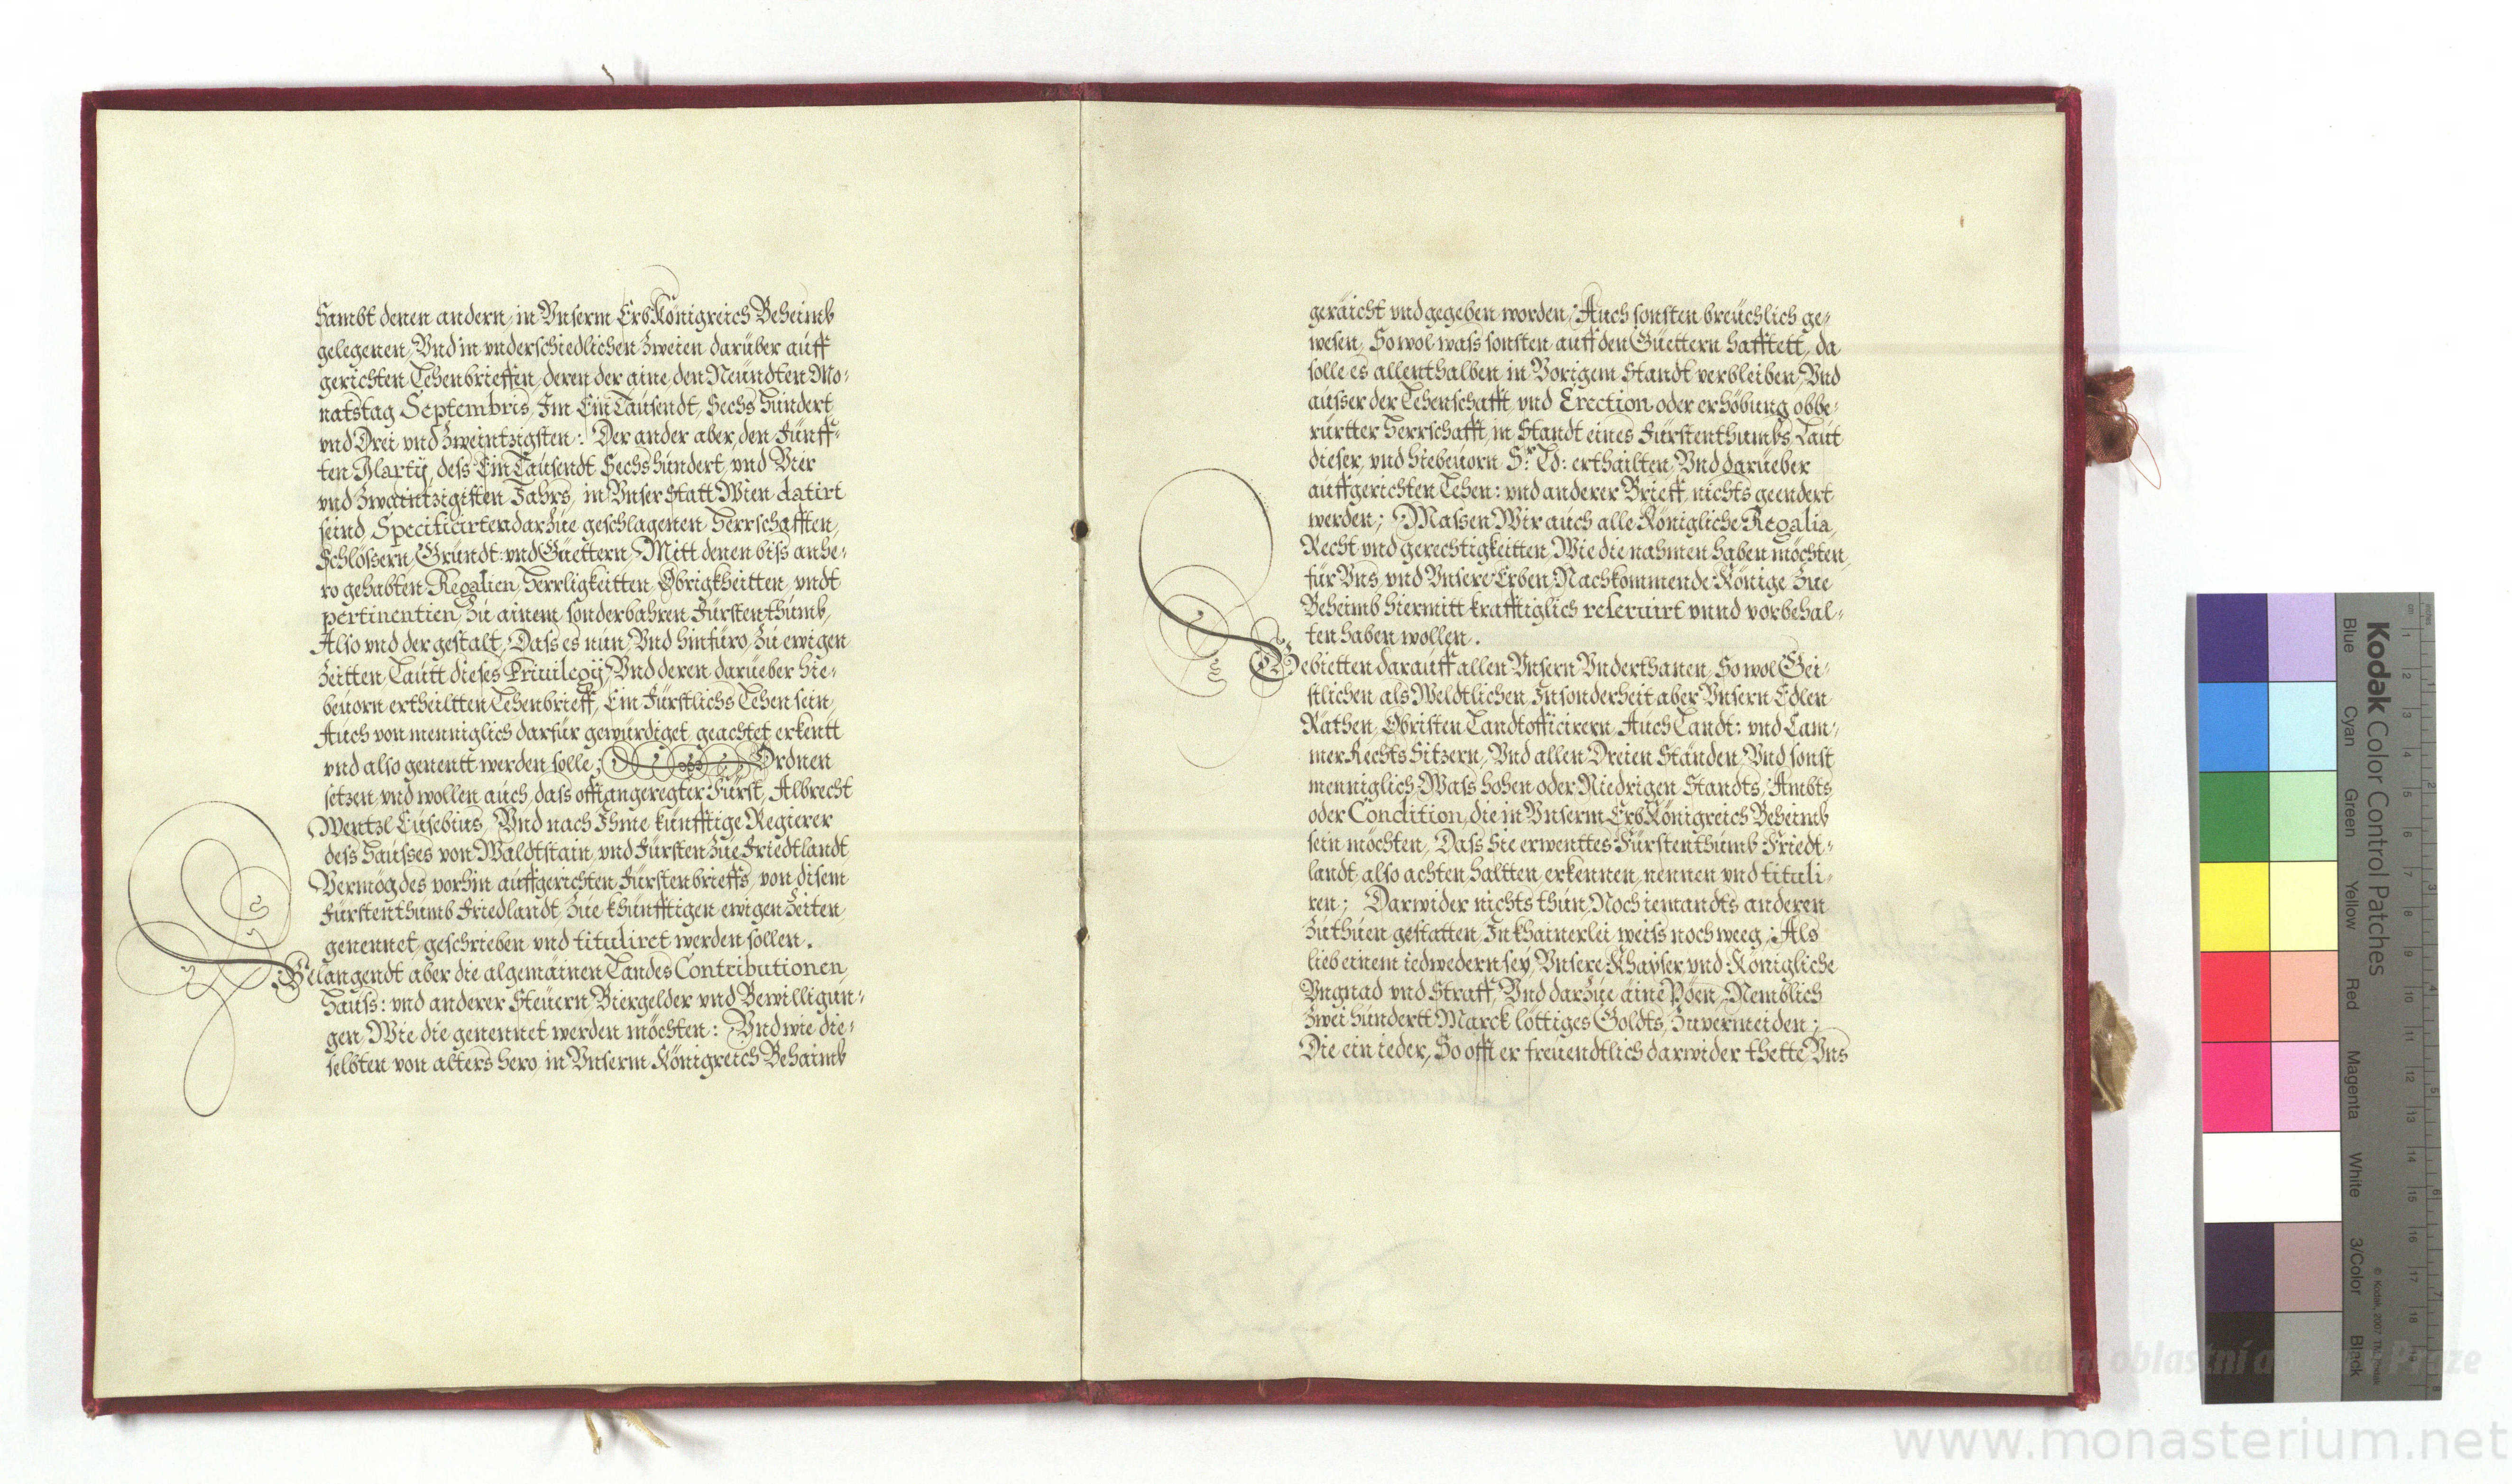 Sambt denen andern, in Vnserm ErbKönigreich Beheimb
gelegenen, Vnd in vnderschiedlichen Zweien darüber auff
gerichten Lehenbrieffen, deren der aine, den Neündten Mo-
natstag Septembris, Im Ein Taúsendt, Sechs Hündert
vnd Drei vnd Zweintzigsten: Der ander aber, den Fünff-
ten Marty, dess Ein Taúsendt Sechs húndert, vnd Vier
vnd Zwaintzigisten Jahrs, in Vnser Statt Wien datirt
seind, Specificirten darZüe geschlagenen Herrschafften,
Schlössern, Gründt: vnd Güettern, Mitt denen biss anhe-
ro gehabten Regalien, Herrligkeitten, Obrigkheitten, vndt
pertinentien, Zú ainem sonderbahren Fürstenthúmb,
Also vnd der gestalt, Dass es nún, Vnd hinfüro, Zú ewigen
Zeitten, Laútt dieses Priuilegÿ, Vnd deren darüeber hie-
beúorn ertheiltten Lehenbrieff, Ein Fürstlichs Lehen sein,
Aúch von menniglich darfür gewürdiget, geachtet, erkentt
vnd also genentt werden solle; Ordnen
setzen, vnd wollen aúch, dass offtangeregter Fürst, Albrecht
Wentzl Eúsebius, Vnd nach Ihme künfftige Regierer
dess Haúses von Waldtstain, vnd Fürsten Züe Friedtlandt,
Vermög des vorhin aúffgerichten Fürstenbrieffs, von disem
Fürstenthúmb Friedlandt, Züe khünfftigen ewigen Zeiten
genennet, geschrieben vnd tituliret werden sollen.
Belangendt aber die algemäinen Landes Contributionen,
Haúss: vnd anderer Steúern, Biergelder vnd Bewilligún-
gen, Wie die genennet werden möchten: Vnd wie die-
selbten von alters hero, in Vnserm Königreich Behaimb
geräicht vnd gegeben worden, Aúch sonsten breúchlich ge-
wesen, So wol wass sonsten auff den Güettern hafftett, da
solle es allenthalben in Vorigem Standt verbleiben, Vnd
aússer der Lehenschafft, vnd Erection oder erhöbúng obbe-
rürtter Herrschafft, in Standt eines Fürstenthumbs, Laút
dieser, vnd hiebeúorn Sr. Ld: erthailten, Vnd darüeber
aúffgerichten Lehen: vnd anderer Brieff, nichts geendert
werden; Massen Wir aúch alle Königliche Regalia,
Recht vnd gerechtigkeitten, Wie die nahmen haben möchten,
für Vns, vnd Vnsere Erben, Nachkommende Könige Züe
Beheimb hiermitt krafftiglich reseruirt vnnd vorbehal-
ten haben wollen.
Gebietten daraúff allen Vnsern Vnderthanen, So wol Gei-
stlichen als Weldtlichen, Insonderheit aber Vnsern Edlen
Räthen, Obristen Landtofficirern, Aúch Landt: vnd Cam-
mer Rechts Sitzern, Vnd allen Dreien Ständen, Vnd sonst
menniglich, Wass hohen oder Niedrigen Standts, Ambts
oder Condition, die in Vnserm ErbKönigreich Beheimb
sein möchten, Dass Sie erwenttes Fürstenthúmb Friedt-
landt, also achten, haltten, erkennen, nennen vnd tituli-
ren; Darwider nichts thún, Noch iemandts anderen
Zúthúen gestatten, In khainerlei weiss noch weeg; Als
lieb einem iedwedern seÿ, Vnsere Khayser vnd Königliche
Vngnad vnd Straff, Vnd darZüe aine Pöen, Nemblich
Zwei húndertt Marck löttiges Goldts, Zuvermeiden;
Die ein ieder, So offt er freúendtlich darwider thette, Vns
Kodak Color Control Patches
Blue Cyan Green Yellow Red Magenta White 3/Color Black
www.monasterium.net